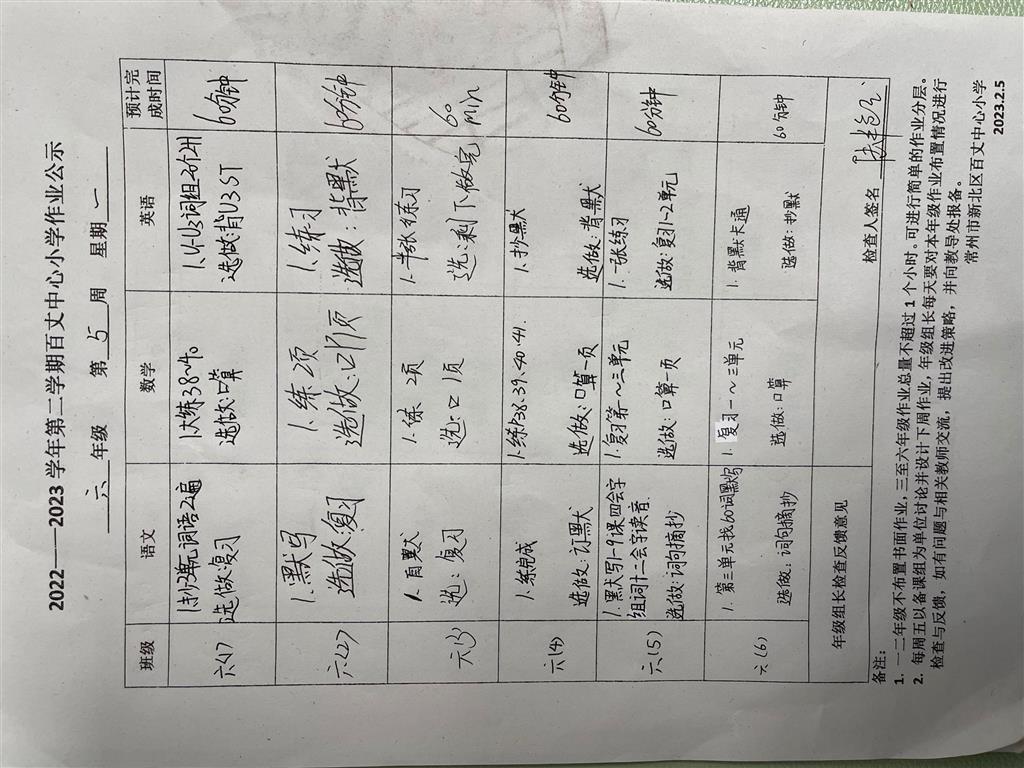 2022——2023 学年第二学期百丈中心小学作业公示
六 年级 第 5 周 星期 一
班级 语文 数学 英语 预计完成时间
六(1)
1.抄3单元词语2遍
选做:复习
1.大练38~40
选做:口算
1.U1-U3词组
选做:背U3 ST
60分钟
六(2)
1.默写
选做:复习
1.练2页
选做:口1页
1.练习
选做:背默
60分钟
六(3)
1.自默
选:复习
1.练2项
选:口1页
1.半张练习
选:剩下做完
60 min
六(4)
1.练完成
选做:订默
1.练P38.39.40.41.
选做:口算一页
1.抄默
选做:背默
60分钟
六(5)
1.默写1~9课四会字
组词十二会字读音.
选做:词句摘抄
1.复习第一~三单元
选做:口算一页
1.一张练习
选做:复习1~2单元
60分钟
六(6)
1.第三单元找60词默写
选做:词句摘抄
1.复习一~三单元
选做:口算
1.背默卡通
选做:抄默
60分钟
年级组长检查反馈意见
检查人签名
备注:
1. 一二年级不布置书面作业,三至六年级作业总量不超过 1 个小时。可进行简单的作业分层。
2. 每周五以备课组为单位讨论并设计下周作业,年级组长每天要对本年级作业布置情况进行
检查与反馈,如有问题与相关教师交流,提出改进策略,并向教导处报备。
常州市新北区百丈中心小学
2023.2.5